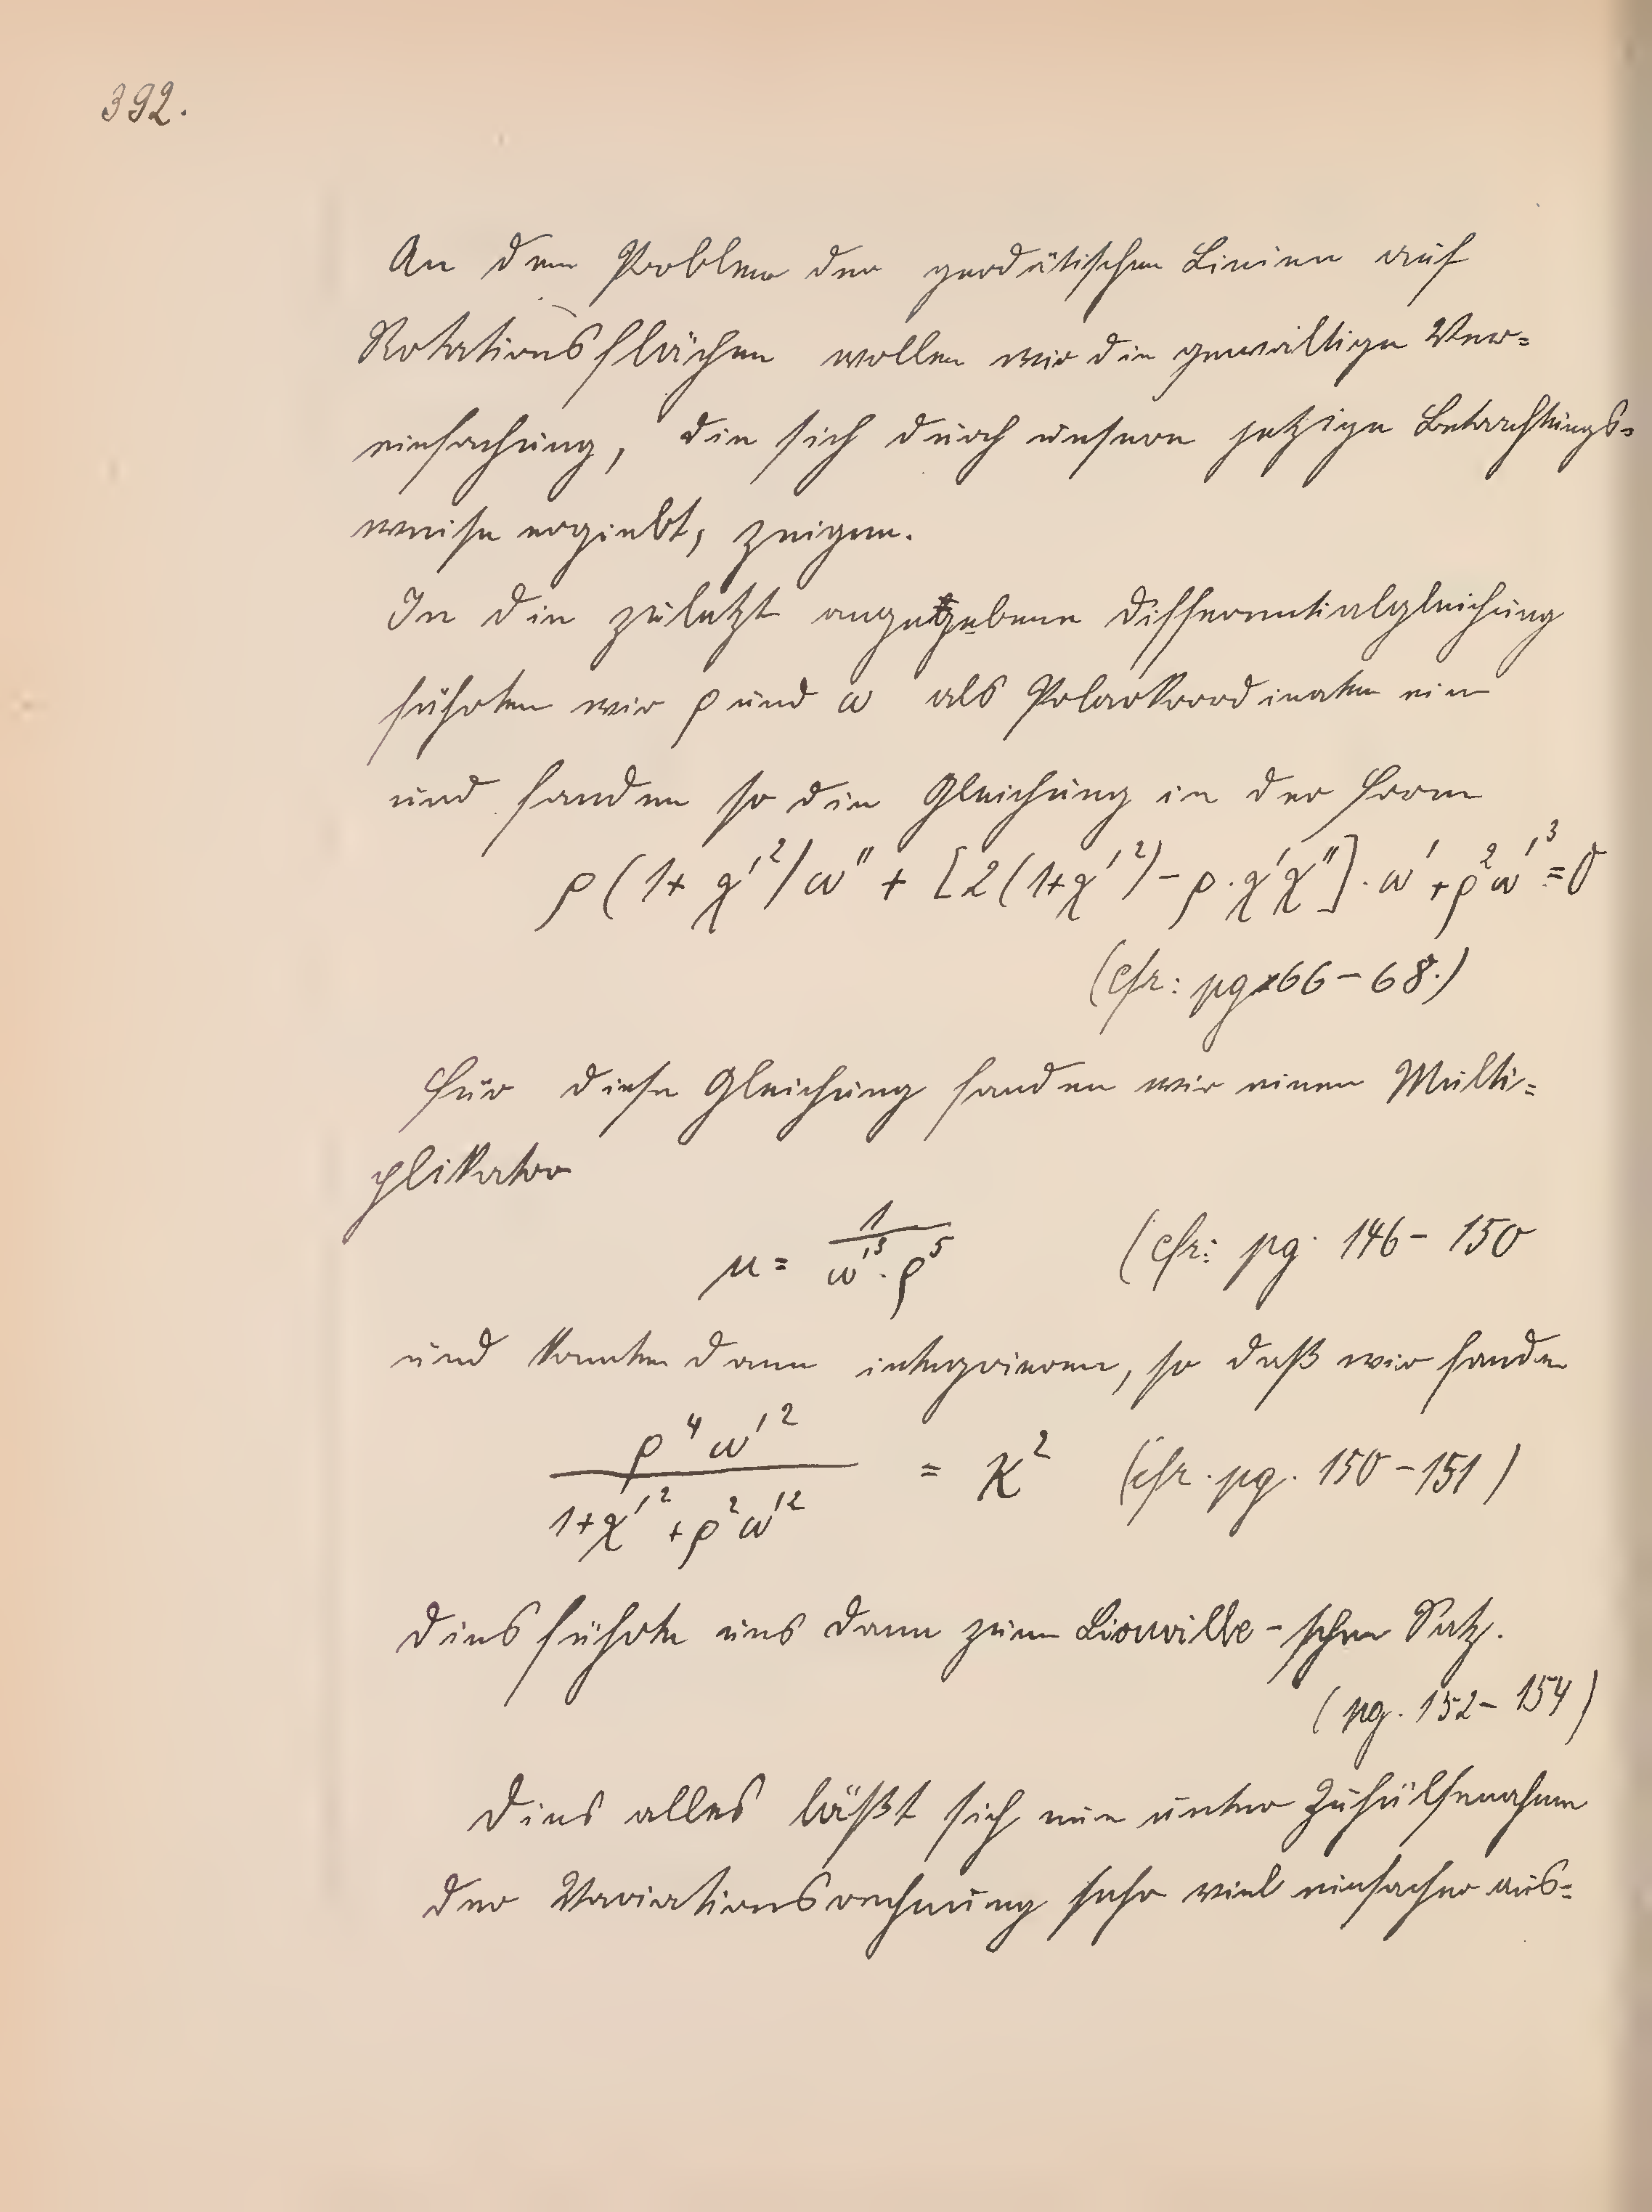 392.
An dem Problem der geodätischen Linien auf
Rotationsflächen wollen wir die gewaltige Ver=
einfachung, die sich durch unsere jetzige Betrachtungs=
weise ergiebt, zeigen.
In die zuletzt angegebene Differentialgleichung
führten wir ρ und ω als Polarkoordinaten ein
und fanden so die Gleichung in der Form
ρ(1+χ'²)ω'' + [2(1+χ'²) − ρ·χ'χ'']·ω' + ρ²ω'³ = 0
(cfr: pg 66 – 68.)
Für diese Gleichung fanden wir einen Multi=
plikator
μ = 1/(ω'³·ρ⁵) (cfr: pg. 146 – 150
und konnten dann integrieren, so daß wir fanden
ρ⁴ω'²/(1+χ'²+ρ²ω'²) = K² (cfr. pg. 150 – 151)
Dies führte uns dann zum Liouville-schen Satz.
(pg. 152 – 154)
Dies alles läßt sich nun unter Zuhülfenahme
der Variationsrechnung sehr viel einfacher aus=